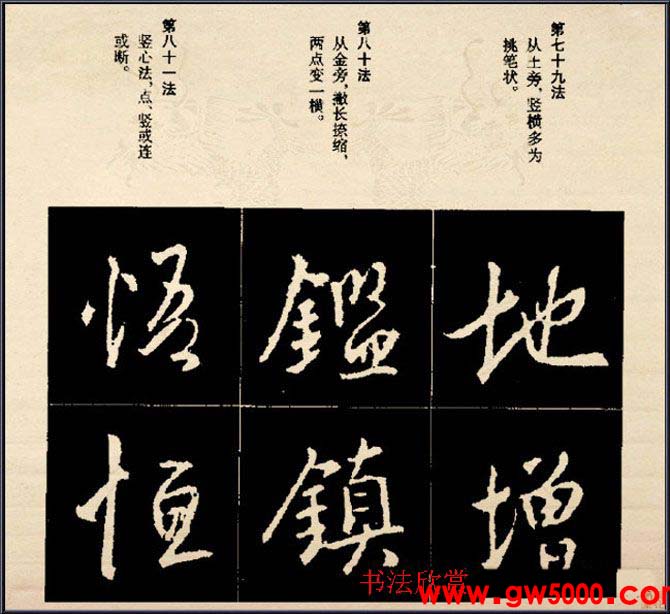 第七十九法
从土旁，竖横多为
挑笔状。
第八十法
从金旁，撇长捺缩，
两点变一横。
第八十一法
竖心法，点、竖或连
或断。
地
增
鑑
鎮
悟
恒
书法欣赏
www.gw5000.com